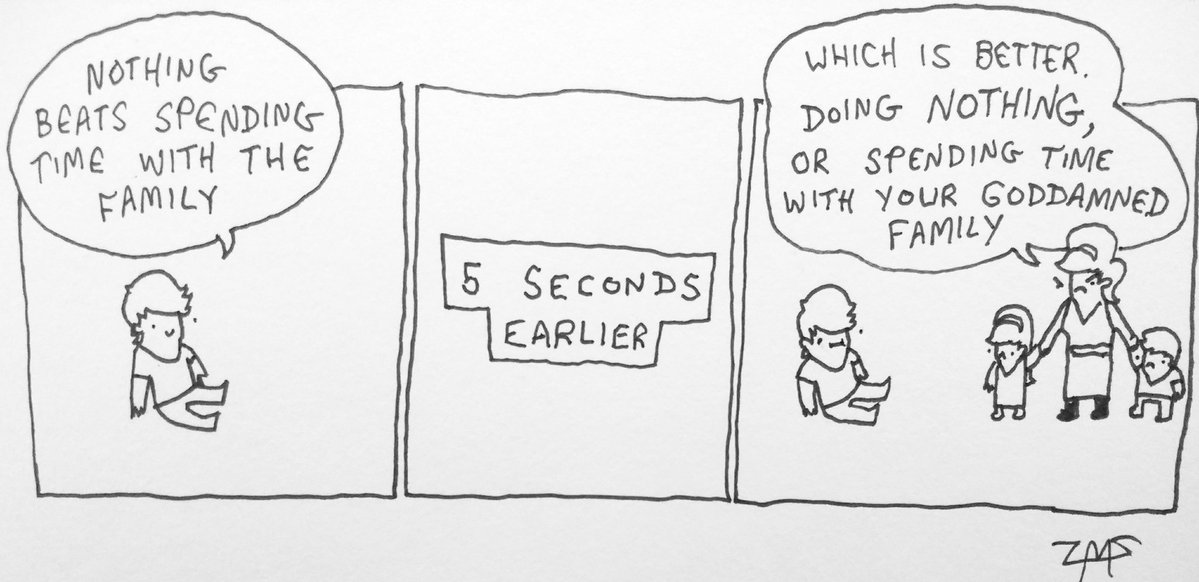 NOTHING
BEATS SPENDING
TIME WITH THE
FAMILY
5 SECONDS
EARLIER
WHICH IS BETTER.
DOING NOTHING,
OR SPENDING TIME
WITH YOUR GODDAMNED
FAMILY